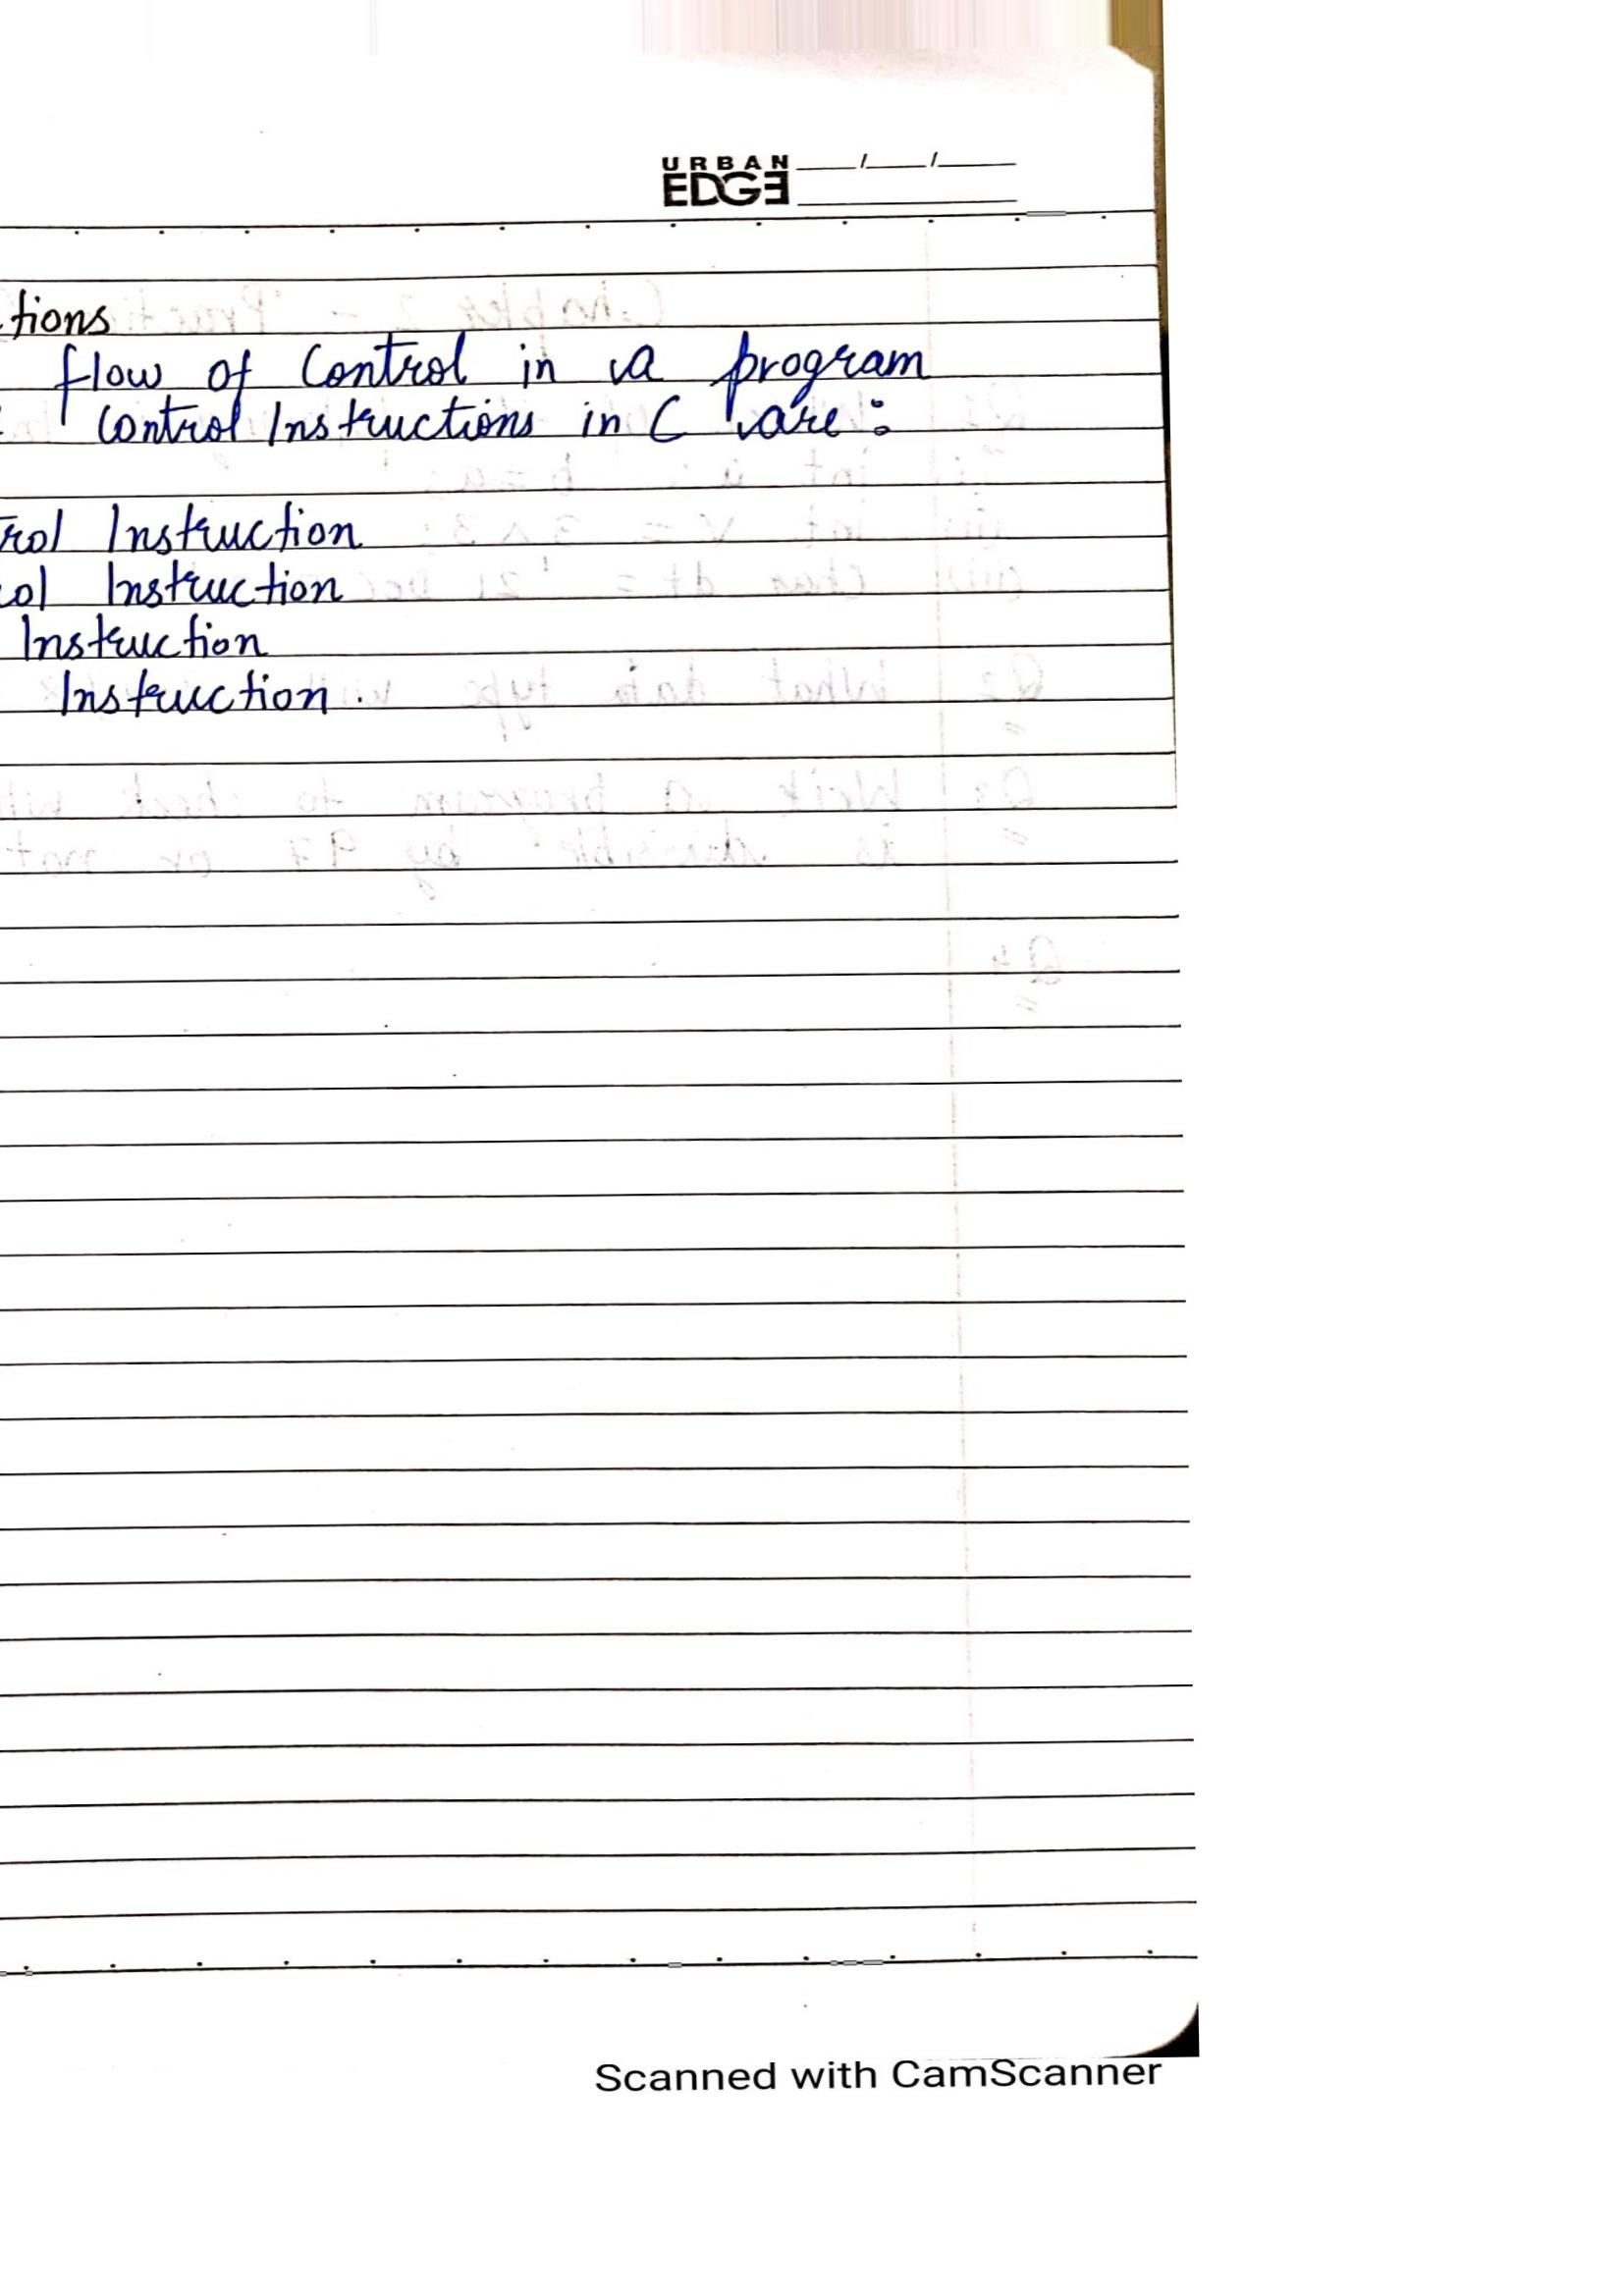 URBAN
EDGE
tions
flow of Control in a program
Control Instructions in C are:
rol Instruction
ol Instruction
Instruction
Instruction.
Scanned with CamScanner